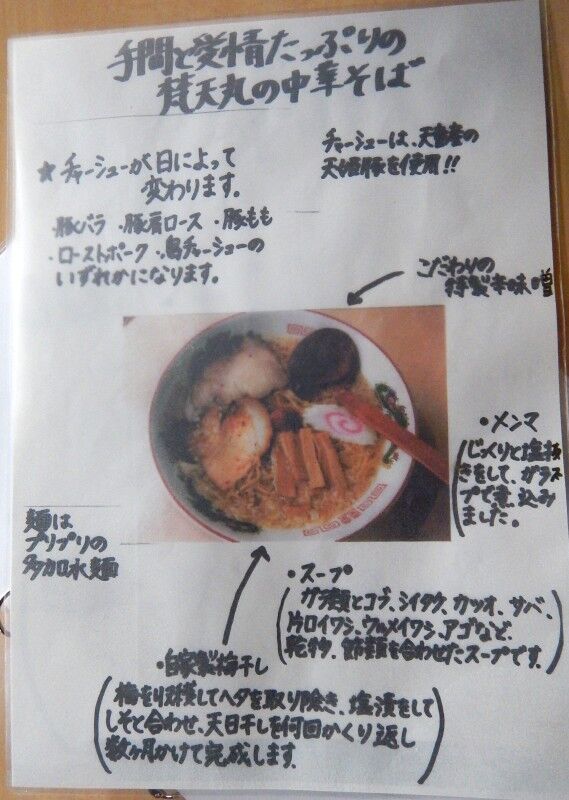 手間と愛情たっぷりの
梵天丸の中華そば
★チャーシューが日によって
変わります。
・豚バラ ・豚肩ロース ・豚もも
・ローストポーク ・鳥チャーシューの
いずれかになります。
チャーシューは、天童産の
天姫豚を使用!!
こだわりの
特製辛味噌
・メンマ
じっくりと塩抜
きをして、ガラス
プで煮込み
ました。
麺は
プリプリの
多加水麺
・スープ
ガラ類とコブ、シイタケ、カツオ、サバ、
片口イワシ、ウルメイワシ、アゴなど、
乾物、節類を合わせたスープです。
・自家製梅干し
梅を収穫してヘタを取り除き、塩漬をして
しそと合わせ、天日干しを何回かくり返し
数ヶ月かけて完成します。